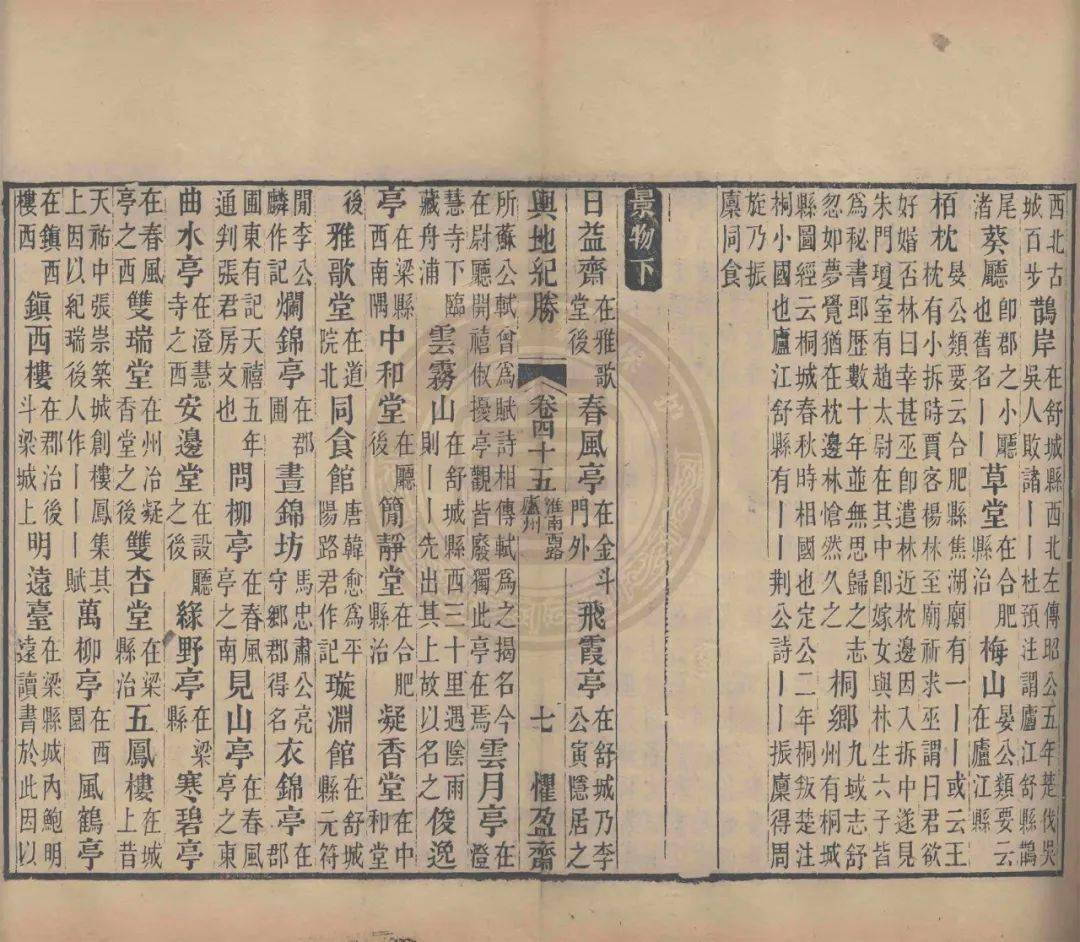 西北古城百步 鵲岸 在舒城縣西北左傳昭公五年楚伐吳吳人敗諸丨丨杜預注謂廬江舒縣鵲
尾渚 葵廳 即郡之小廳也舊名丨丨 草堂 在合肥縣治 梅山 晏公類要云在廬江縣
栢枕 晏公類要云合肥縣焦湖廟有一丨丨或云王枕有小拆時賈客楊林至廟祈求巫謂曰君欲
好婚否林曰幸甚巫即遣林近枕邊因入拆中遂見朱門瓊室有趙太尉在其中即嫁女與林生六子皆
為秘書郎歷數十年並無思歸之志忽如夢覺猶在枕邊林愴然久之 桐鄉 九域志舒州有桐城
縣圖經云桐城春秋時相國也定公二年桐叛楚注桐小國也廬江舒縣有丨丨荆公詩丨丨振廩得周
旋乃振廩同食
景物下
日益齋 在雅歌堂後 春風亭 在金斗門外 飛霞亭 在舒城乃李公寅隱居之
輿地紀勝 卷四十五 淮南西路廬州 七 懼盈齋
所蘇公軾曾為賦詩相傳軾為之揭名今在尉廳開禧俶擾亭觀皆廢獨此亭在焉 雲月亭 在澄
慧寺下臨藏舟浦 雲霧山 在舒城縣西三十里遇陰雨則丨丨先出其上故以名之 俊逸
亭 在梁縣西南隅 中和堂 在廳後 簡靜堂 在合肥縣治 凝香堂 在中和堂
後 雅歌堂 在道院北 同食館 唐韓愈為平陽路君作記 璇淵館 在舒城縣元符
閒李公麟作記 爛錦亭 在郡圃 晝錦坊 馬忠肅公亮守鄉郡得名 衣錦亭 在郡
圃東有記天禧五年通判張君房文也 問柳亭 在春風亭之南 見山亭 在春風亭之東
曲水亭 在澄慧寺之西 安邊堂 在設廳之後 綠野亭 在梁縣 寒碧亭
在春風亭之西 雙瑞堂 在州治凝香堂之後 雙杏堂 在梁縣治 五鳳樓 在城上昔
天祐中張崇築城創樓鳳集其上因以紀瑞後人作丨丨丨賦 萬柳亭 在西園 風鶴亭
在鎮西樓西 鎮西樓 在郡治後斗梁城上 明遠臺 在梁縣城內鮑明遠讀書於此因以